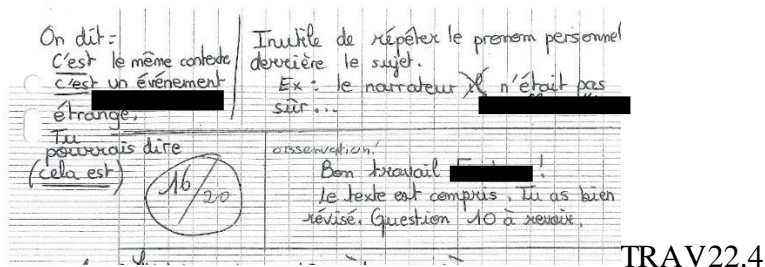 On dit :
C'est le même contexte
c'est un événement
étrange.
Tu
pourrais dire
(cela est)
Inutile de répéter le pronom personnel
derrière le sujet.
Ex : le narrateur il n'était pas
sûr...
16/20
observation:
Bon travail !
Le texte est compris. Tu as bien
révisé. Question 10 à revoir.
TRAV22.4